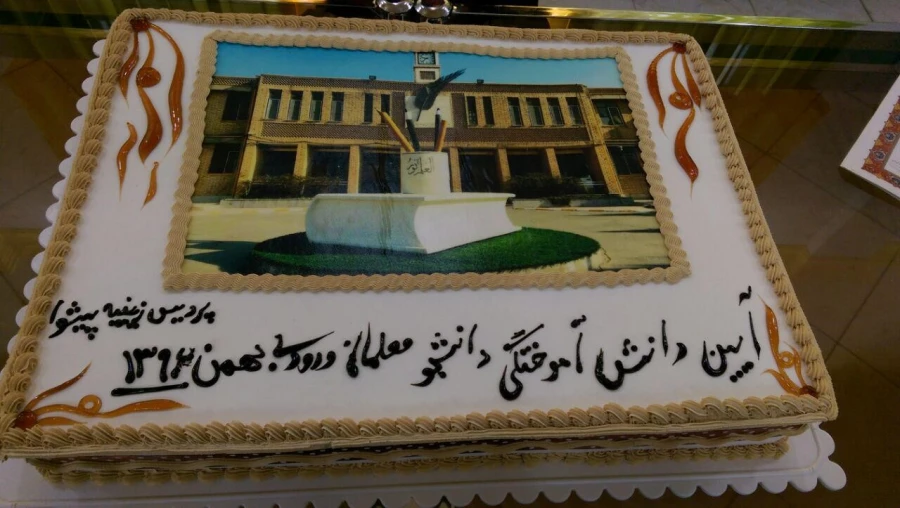 العلم نور
آیین دانش آموختگی دانشجو معلمان ورودی بهمن ۱۳۹۲
پردیس زینبیه پیشوا